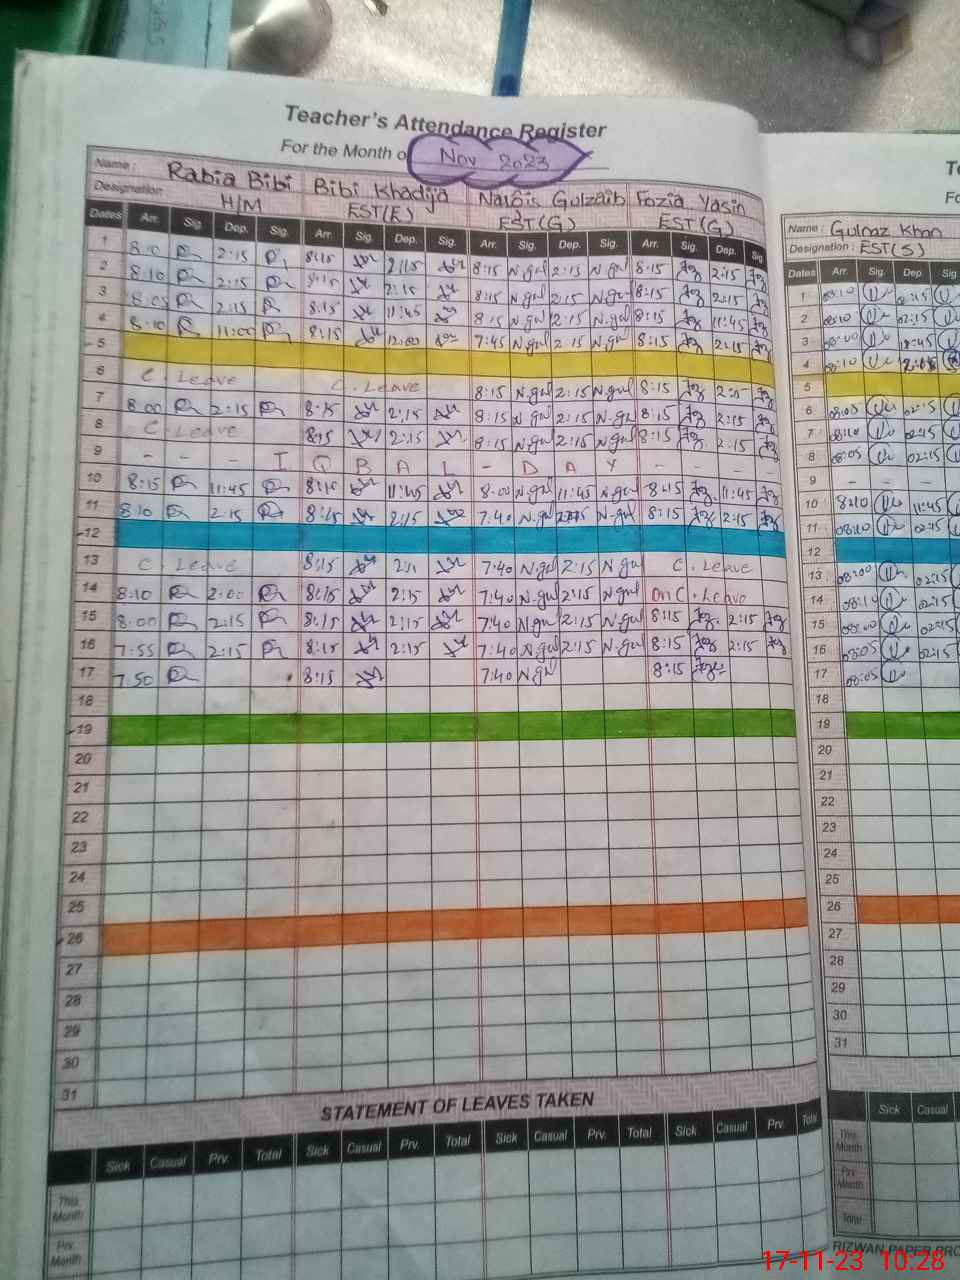 Teacher's Attendance Register
For the Month o Nov 2023
Name : Rabia Bibi Bibi Khadija Nargis Gulzaib Fozia Yasin
Designation H/M EST(E) EST(G) EST(G)
Dates Arr. Sig. Dep. Sig. Arr. Sig. Dep. Sig. Arr. Sig. Dep. Sig. Arr. Sig. Dep. Sig
1 8:10 2:15 8:15 2:15 8:15 N.gul 2:15 N.gul 8:15 2:15
2 8:10 2:15 8:15 2:15 8:15 N.gul 2:15 N.gul 8:15 2:15
3 8:05 2:15 8:15 11:45 8:15 N.gul 2:15 N.gul 8:15 11:45
4 8:10 11:00 8:15 12:00 7:45 N.gul 2:15 N.gul 8:15 2:15
5
6 C. Leave C. Leave 8:15 N.gul 2:15 N.gul 8:15 2:15
7 8:00 2:15 8:15 2:15 8:15 N.gul 2:15 N.gul 8:15 2:15
8 C. Leave 8:15 2:15 8:15 N.gul 2:15 N.gul 8:15 2:15
9 - - - I Q B A L - D A Y - - - -
10 8:15 11:45 8:15 11:45 8:00 N.gul 11:45 N.gul 8:15 11:45
11 8:10 2:15 8:15 2:15 7:40 N.gul N.gul 8:15 2:15
12
13 C. Leave 8:15 7:40 N.gul 2:15 N.gul C. Leave
14 8:10 2:00 8:15 2:15 7:40 N.gul 2:15 N.gul On C. Leave
15 8:00 2:15 8:15 2:15 7:40 N.gul 2:15 N.gul 8:15 2:15
16 7:55 2:15 8:15 2:15 7:40 N.gul 2:15 N.gul 8:15 2:15
17 7:50 8:15 7:40 N.gul 8:15
18
19
20
21
22
23
24
25
26
27
28
29
30
31
STATEMENT OF LEAVES TAKEN
Sick Casual Prv. Total Sick Casual Prv. Total Sick Casual Prv. Total Sick Casual Prv. Total
This Month
Prv. Month
Te
Fo
Name : Gulnaz Khan
Designation : EST(S)
Dates Arr. Sig. Dep. Sig
1 08:10 02:15
2 08:10 02:15
3 08:00
4 08:10
5
6 08:05 02:15
7 08:10 02:15
8 08:05 02:15
9 - - -
10 8:10 11:45
11 08:10 02:15
12
13 08:00 02:15
14 08:10 02:15
15 08:00 02:15
16 08:05 02:15
17 08:05
18
19
20
21
22
23
24
25
26
27
28
29
30
31
Sick Casual
This Month
Prv. Month
Total
RIZWAN PAPER PRO
17-11-23 10:28